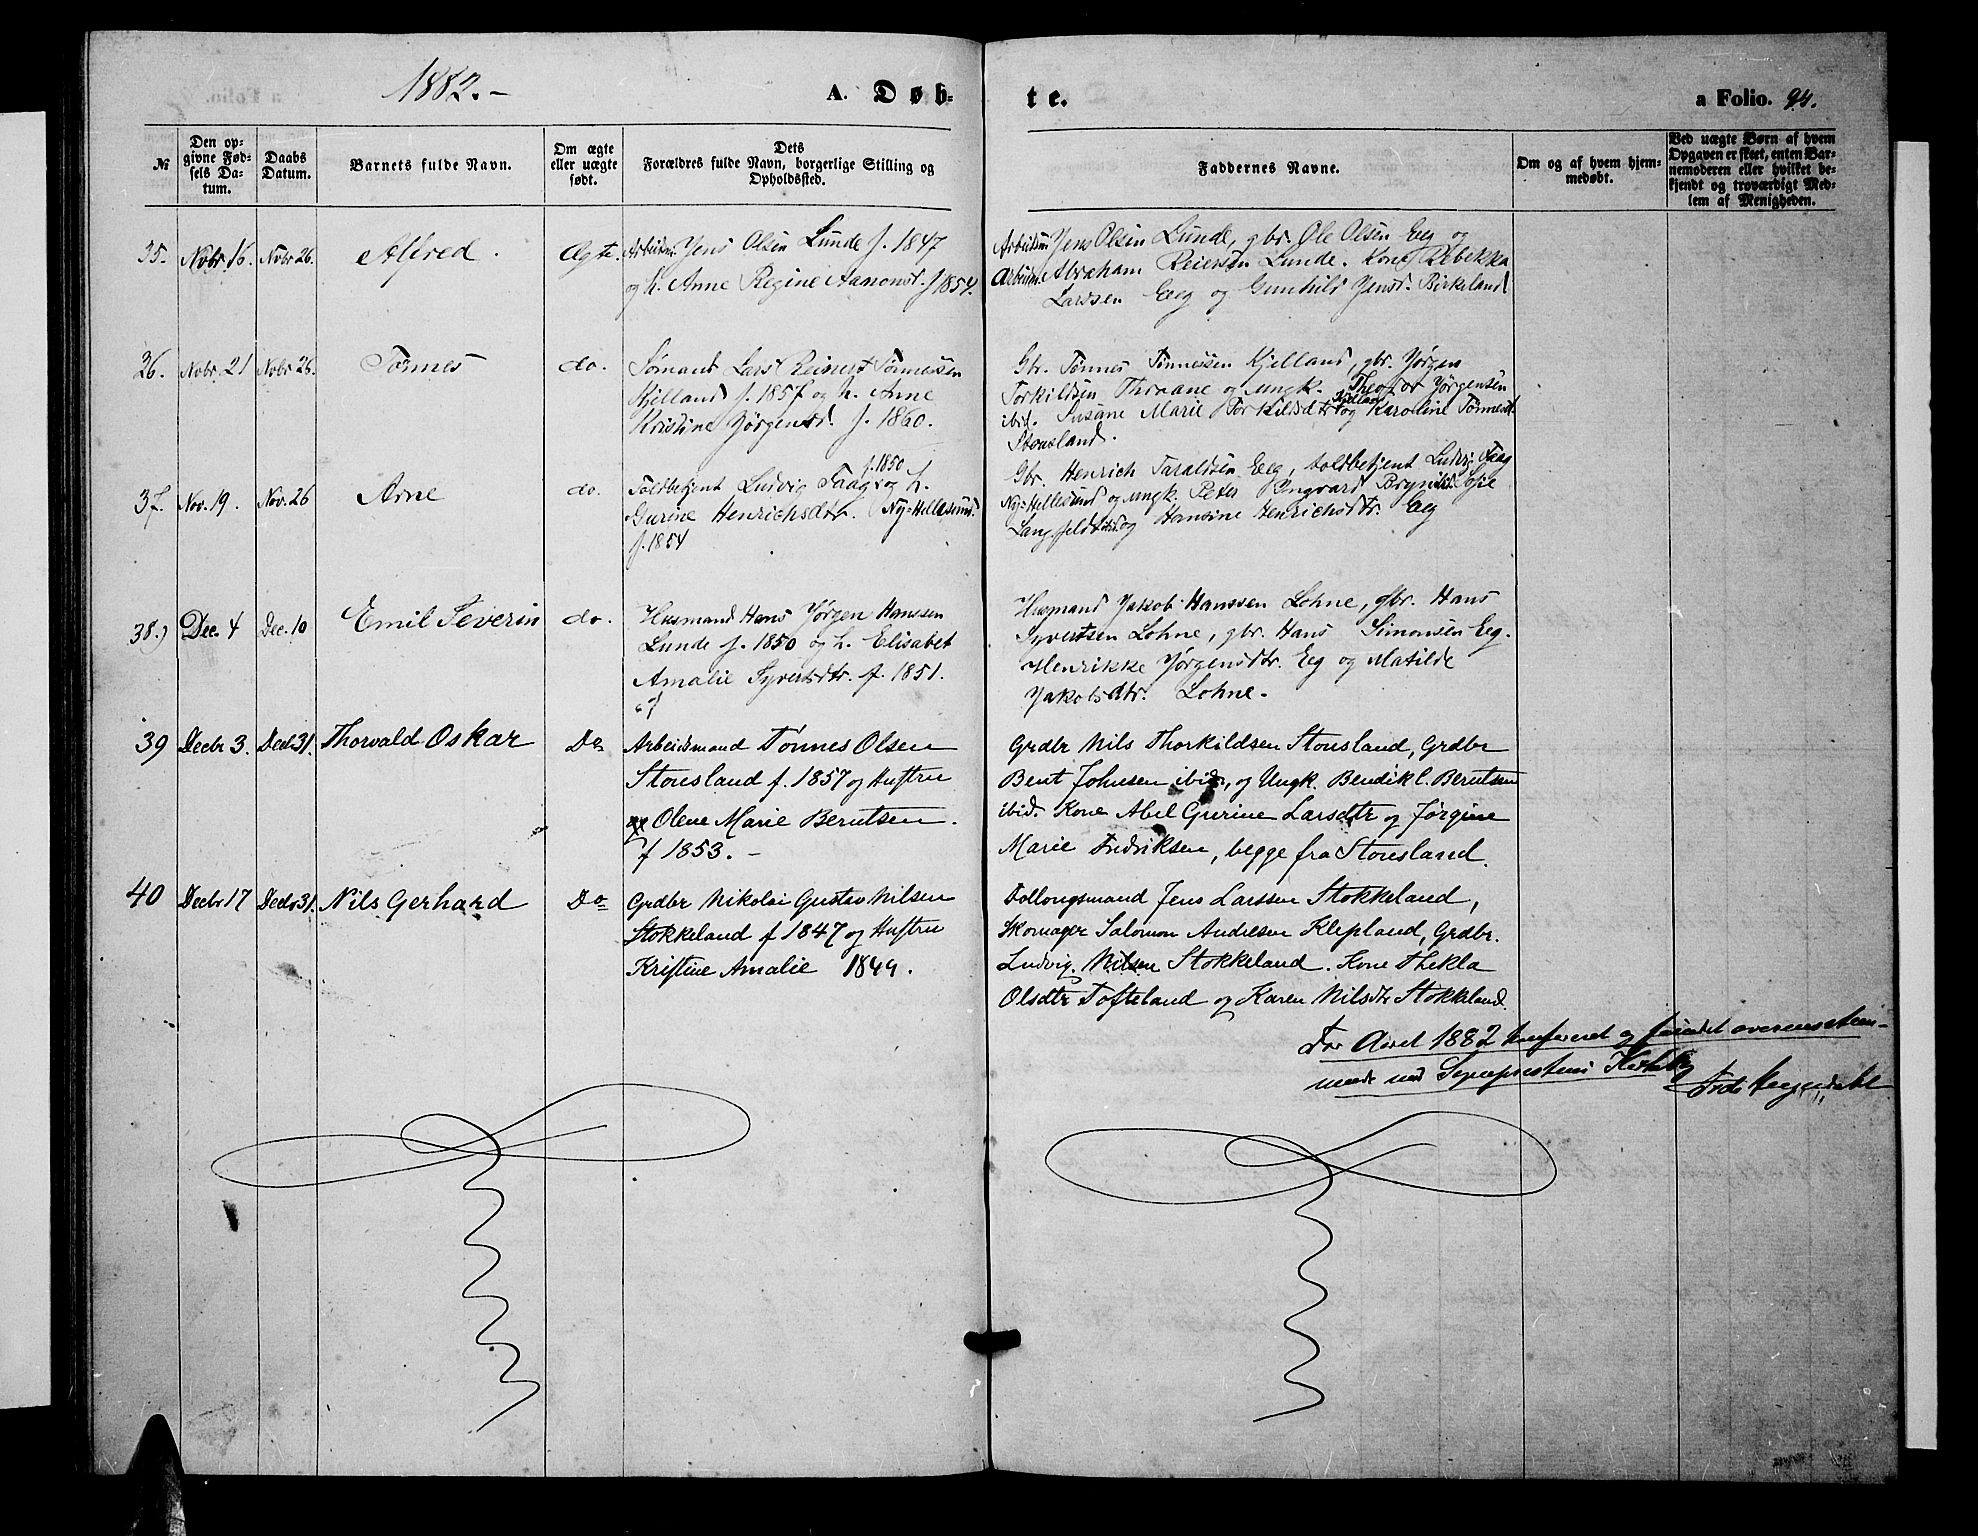 1882.-
A. Døb-
te.
a Folio. 94.
№
Den op-
givne Fød-
sels Da-
tum.
Daabs
Datum.
Barnets fulde Navn.
Om ægte
eller uægte
født.
Dets
Forældres fulde Navn, borgerlige Stilling og
Opholdssted.
Faddernes Navne.
Om og af hvem hjem-
medøbt.
Ved uægte Børn af hvem
Opgaven er skeet, enten Bar-
nemoderen eller hvilket be-
kjendt og troværdigt Med-
lem af Menigheden.
35. Nobr. 16. Nobr 26. Alfred. Ægte. Arbeidsm. Jens Olsen Lunde f. 1847
og h. Anne Regine Aanonsd. f 1854.
Arbeidsm. Jens Olsen Lunde, gbr. Ole Olsen Eeg og
Arbeidsm. Abraham Reiersen Lunde. Kone Rebekka
Larssen Eeg og Gunhild Jensd. Birkeland
36. Nobr. 21 Nobr 26. Tønnes do. Sømand Lars Reinert Tønnessen
Kjelland f. 1857 og h. Anne
Kristine Jørgensd. f. 1860.
Gbr. Tønnes Tønnessen Kjelland, gbr. Jørgen
Torkildsen Thraane og ungk. Theodor Jørgensen
ibid. Susane Marie Torkildsdtr Kjelland og Karoline Tønnesd.
Stousland.
37. Nov. 19. Nov. 26 Arne do. Toldbetjent Ludvig Faag f. 1850 og h.
Gurine Henrichsdtr. Ny-Hellesund.
f. 1854
Gbr. Henrich Taraldsen Eeg, toldbetjent Ludvig Faag
Ny-Hellesund og ungk. Peter Yngvard Bryn ibid. Sofie
Langfeldt ibid. og Hansine Henrichsdtr. Eeg
38.) Dec. 4 Dec. 10 Emil Severin do. Husmand Hans Jørgen Hanssen
Lunde f. 1850 og h. Elisabet
Amalie Syvertsdtr. f. 1851.
Husmand Jakob Hanssen Lohne, gbr. Hans
Syvertsen Lohne, gbr. Hans Simonsen Eeg.
Henrikke Jørgensdtr. Eeg og Matilde
Jakobsdtr. Lohne.
39 Decbr 3. Decbr 31. Thorvald Oskar Do Arbeidsmand Tønnes Olsen
Stousland f. 1857 og Hustru
Olene Marie Berntsen.
f 1853. -
Grdbr Nils Thorkildsen Stousland, Grdbr
Bent Johnsen ibid, og Ungk. Bendik C. Berntsen
ibid. Kone Abel Gurine Larsdtr og Jørgine
Marie Fredriksen, begge fra Stousland.
40 Decbr 17 Decbr 31. Nils Gerhard Do Grdbr Nikolai Gustav Nilsen
Stokkeland f 1847 og Hustru
Kristine Amalie 1849.
Follougsmand Jens Larssen Stokkeland,
Skomager Salomon Andresen Klepland, Grdbr.
Ludvig Nilsen Stokkeland. Kone Thekla
Olsdtr Tofteland og Karen Nilsdtr Stokkeland.
For Aaret 1882 konfereret og fundet overensstem-
mende med Sognepræstens Kirkebog